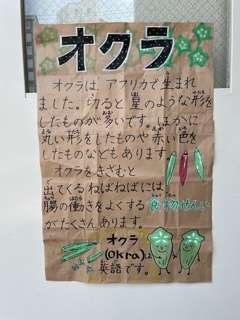 オクラ
オクラは、アフリカで生まれ
ました。切ると星のような形を
したものが多いです。ほかに
丸い形をしたものや赤い色を
したものなどもあります。
オクラをきざむと
出てくるねばねばには、
腸の働きをよくする食物せんい
がたくさんあります。
オクラ
(Okra)は
英語です。